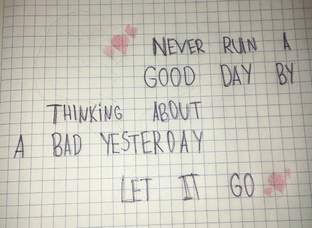 NEVER RUIN A
GOOD DAY BY
THINKING ABOUT
A BAD YESTERDAY
LET IT GO